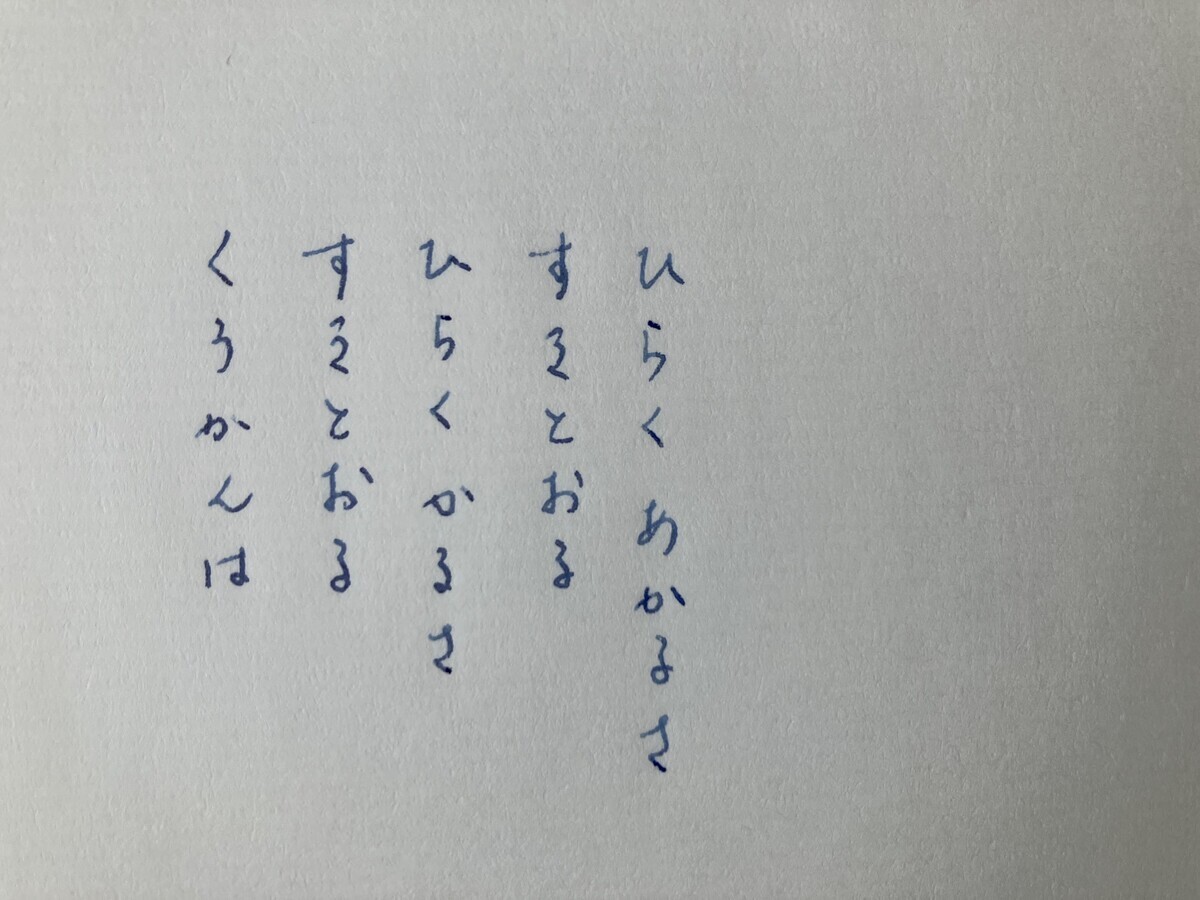 ひらく あかるさ
すえとおる
ひらく かるさ
すえとおる
くうかんは